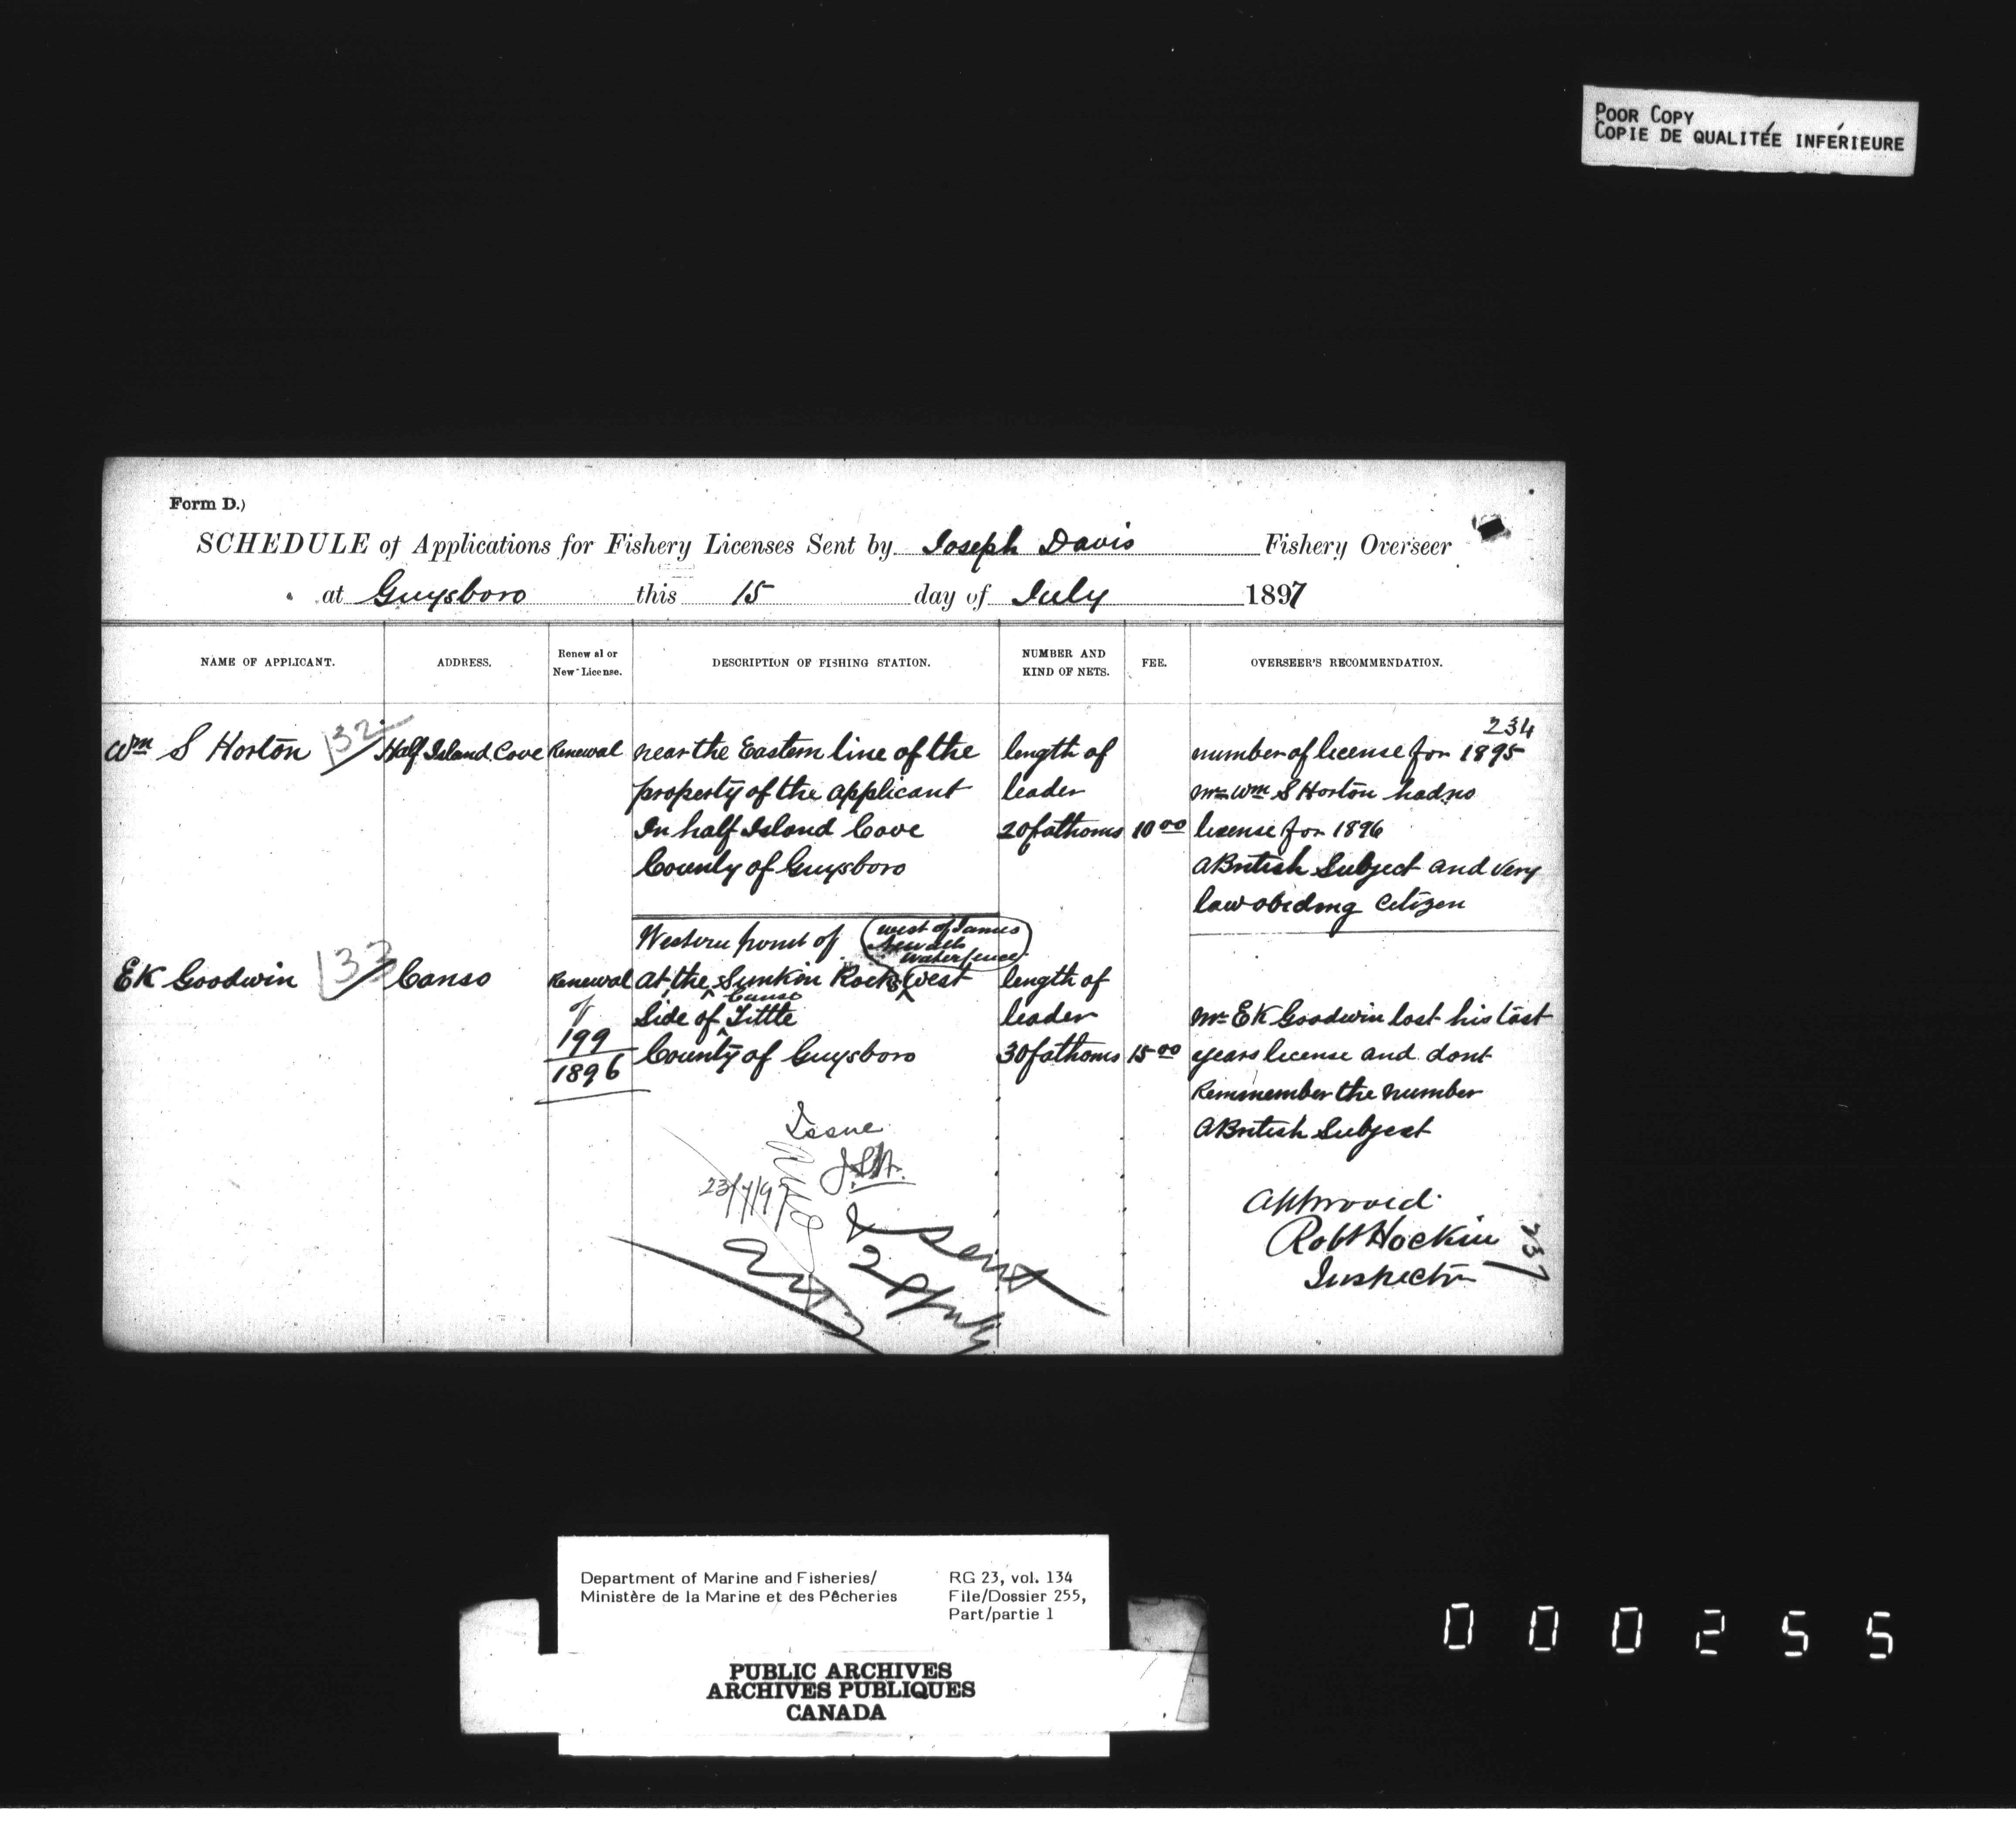 POOR COPY
COPIE DE QUALITÉE INFÉRIEURE
Form D.)
SCHEDULE of Applications for Fishery Licenses Sent by Joseph Davis Fishery Overseer
at Guysboro this 15 day of July 1897
NAME OF APPLICANT.
ADDRESS.
Renewal or
New License.
DESCRIPTION OF FISHING STATION.
NUMBER AND
KIND OF NETS.
FEE.
OVERSEER'S RECOMMENDATION.
Wm S Horton
132
Half Island Cove
Renewal
near the Eastern line of the
property of the applicant
In half Island Cove
County of Guysboro
length of
leader
20 fathoms
10 00
234
number of license for 1895
Mr Wm S Horton had no
license for 1896
A British Subject and very
law abiding Citizen
EK Goodwin
133
Canso
Renewal
of
199
1896
Western point of (west of James
waterfence)
at the Sunkin Rocks West
Canso
Side of Tittle
County of Guysboro
length of
leader
30 fathoms
15 00
Mr EK Goodwin lost his last
years license and dont
Remmember the number
A British Subject
Issue
23/7/97
2 sent
Approved
Robt Hockin
Inspector
237
Department of Marine and Fisheries/
Ministère de la Marine et des Pêcheries
RG 23, vol. 134
File/Dossier 255,
Part/partie 1
PUBLIC ARCHIVES
ARCHIVES PUBLIQUES
CANADA
000255